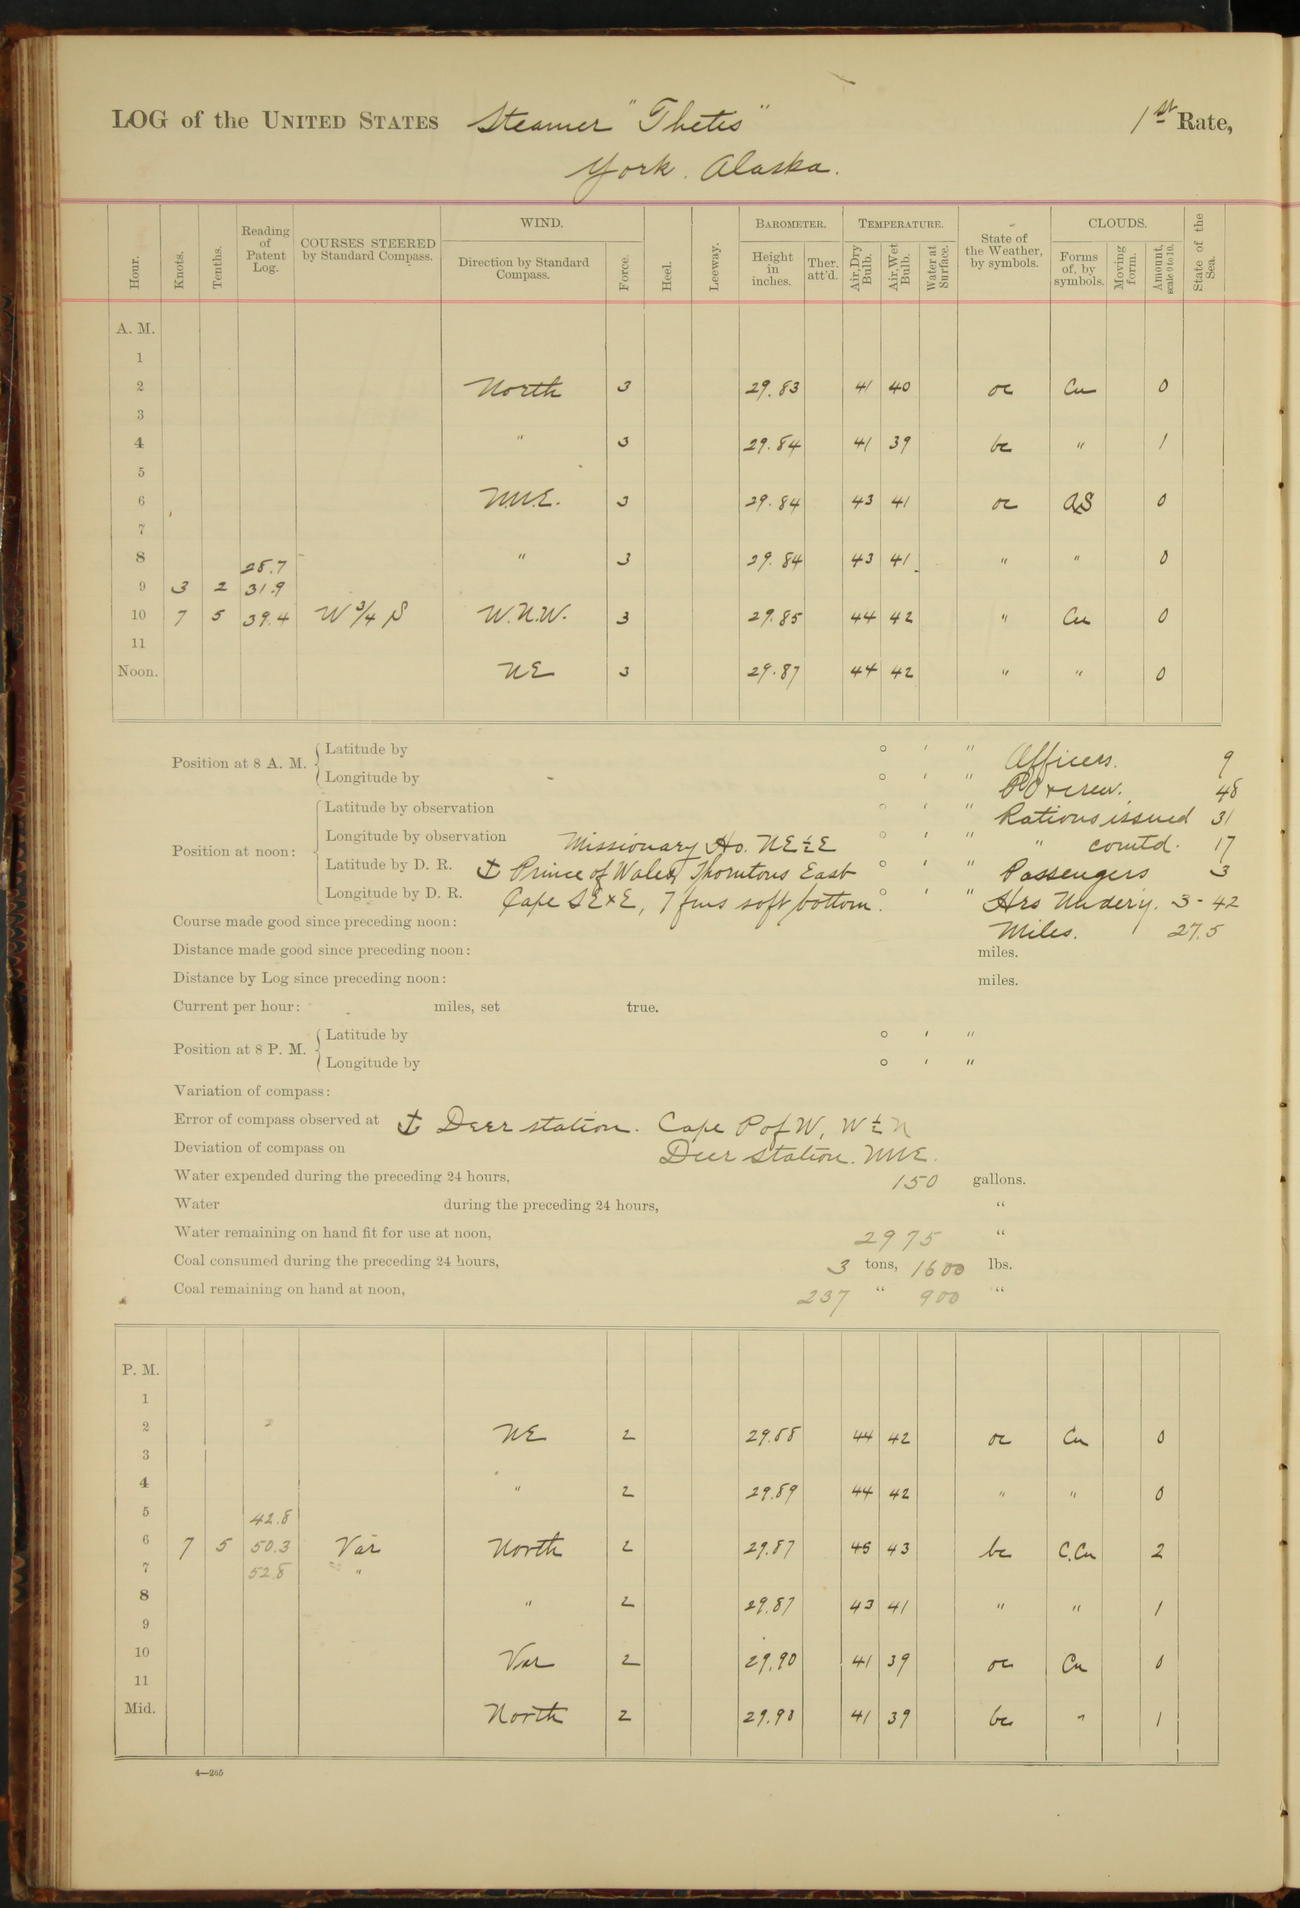 LOG of the UNITED STATES Steamer "Thetis" 1st Rate,
York. Alaska.
Hour. Knots. Tenths. Reading of Patent Log. COURSES STEERED by Standard Compass. WIND. Direction by Standard Compass. Force. Heel. Leeway. BAROMETER. Height in inches. Ther. att'd. TEMPERATURE. Air, Dry Bulb. Air, Wet Bulb. Water at Surface. State of the Weather, by symbols. CLOUDS. Forms of, by symbols. Moving form. Amount, scale 0 to 10. State of the Sea.
A. M.
1
2 North 3 29.83 41 40 oc Cu 0
3
4 " 3 29.84 41 39 bc " 1
5
6 N.N.E. 3 29.84 43 41 oc AS 0
7
8 28.7 " 3 29.84 43 41 " " 0
9 3 2 31.9
10 7 5 39.4 W 3/4 S W.N.W. 3 29.85 44 42 " Cu 0
11
Noon. NE 3 29.87 44 42 " " 0
Position at 8 A. M. Latitude by ° ' " Officers. 9
Longitude by ° ' " PO & crew. 48
Position at noon: Latitude by observation ° ' " Rations issued 31
Longitude by observation Missionary Ho. NE½E ° ' " " comtd. 17
Latitude by D. R. ⚓ Prince of Wales, Thorntons East ° ' " Passengers 3
Longitude by D. R. Cape SExE, 7 fms soft bottom. ° ' " Hrs Undery. 3-42
Course made good since preceding noon: Miles. 27.5
Distance made good since preceding noon: miles.
Distance by Log since preceding noon: miles.
Current per hour: miles, set true.
Position at 8 P. M. Latitude by ° ' "
Longitude by ° ' "
Variation of compass:
Error of compass observed at ⚓ Deer station. Cape P of W, W½N
Deviation of compass on Deer station. NNE.
Water expended during the preceding 24 hours, 150 gallons.
Water during the preceding 24 hours, "
Water remaining on hand fit for use at noon, 2975 "
Coal consumed during the preceding 24 hours, 3 tons, 1600 lbs.
Coal remaining on hand at noon, 237 " 900 "
P. M.
1
2 NE 2 29.88 44 42 oc Cu 0
3
4 " 2 29.89 44 42 " " 0
5 42.8
6 7 5 50.3 Var North 2 29.87 45 43 bc C.Cu 2
7 52.8 "
8 " 2 29.87 43 41 " " 1
9
10 Var 2 29.90 41 39 oc Cu 0
11
Mid. North 2 29.90 41 39 bc " 1
4—265